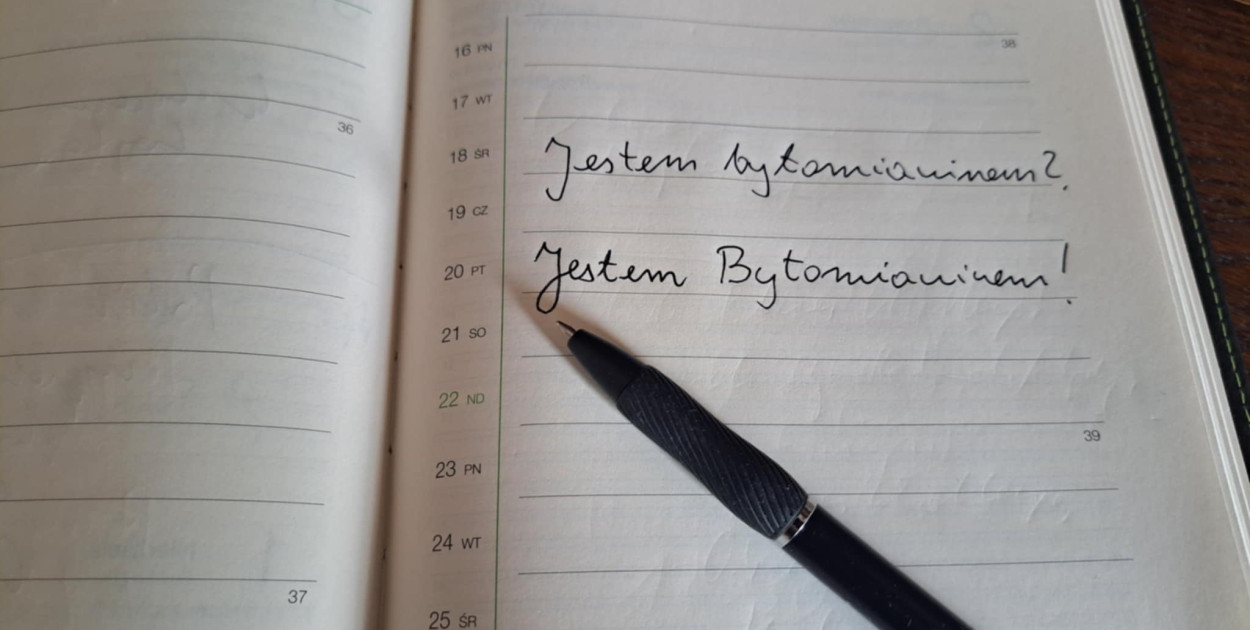 36
37
16 PN
38
17 WT
18 ŚR Jestem bytomianinem?
19 CZ
20 PT Jestem Bytomianinem!
21 SO
22 ND
39
23 PN
24 WT
25 ŚR